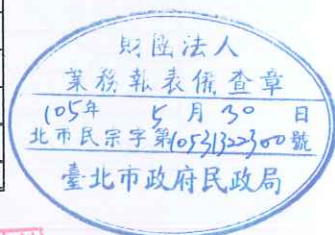 財團法人
業務報表備查章
105年 5月30日
北市民宗字第10531322300號
臺北市政府民政局